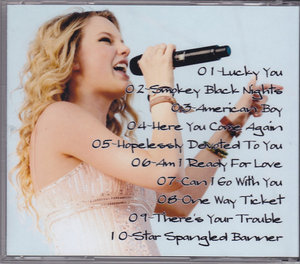 01-Lucky You
02-Smokey Black Nights
03-American Boy
04-Here You Come Again
05-Hopelessly Devoted To You
06-Am I Ready For Love
07-Can I Go With You
08-One Way Ticket
09-There's Your Trouble
10-Star Spangled Banner